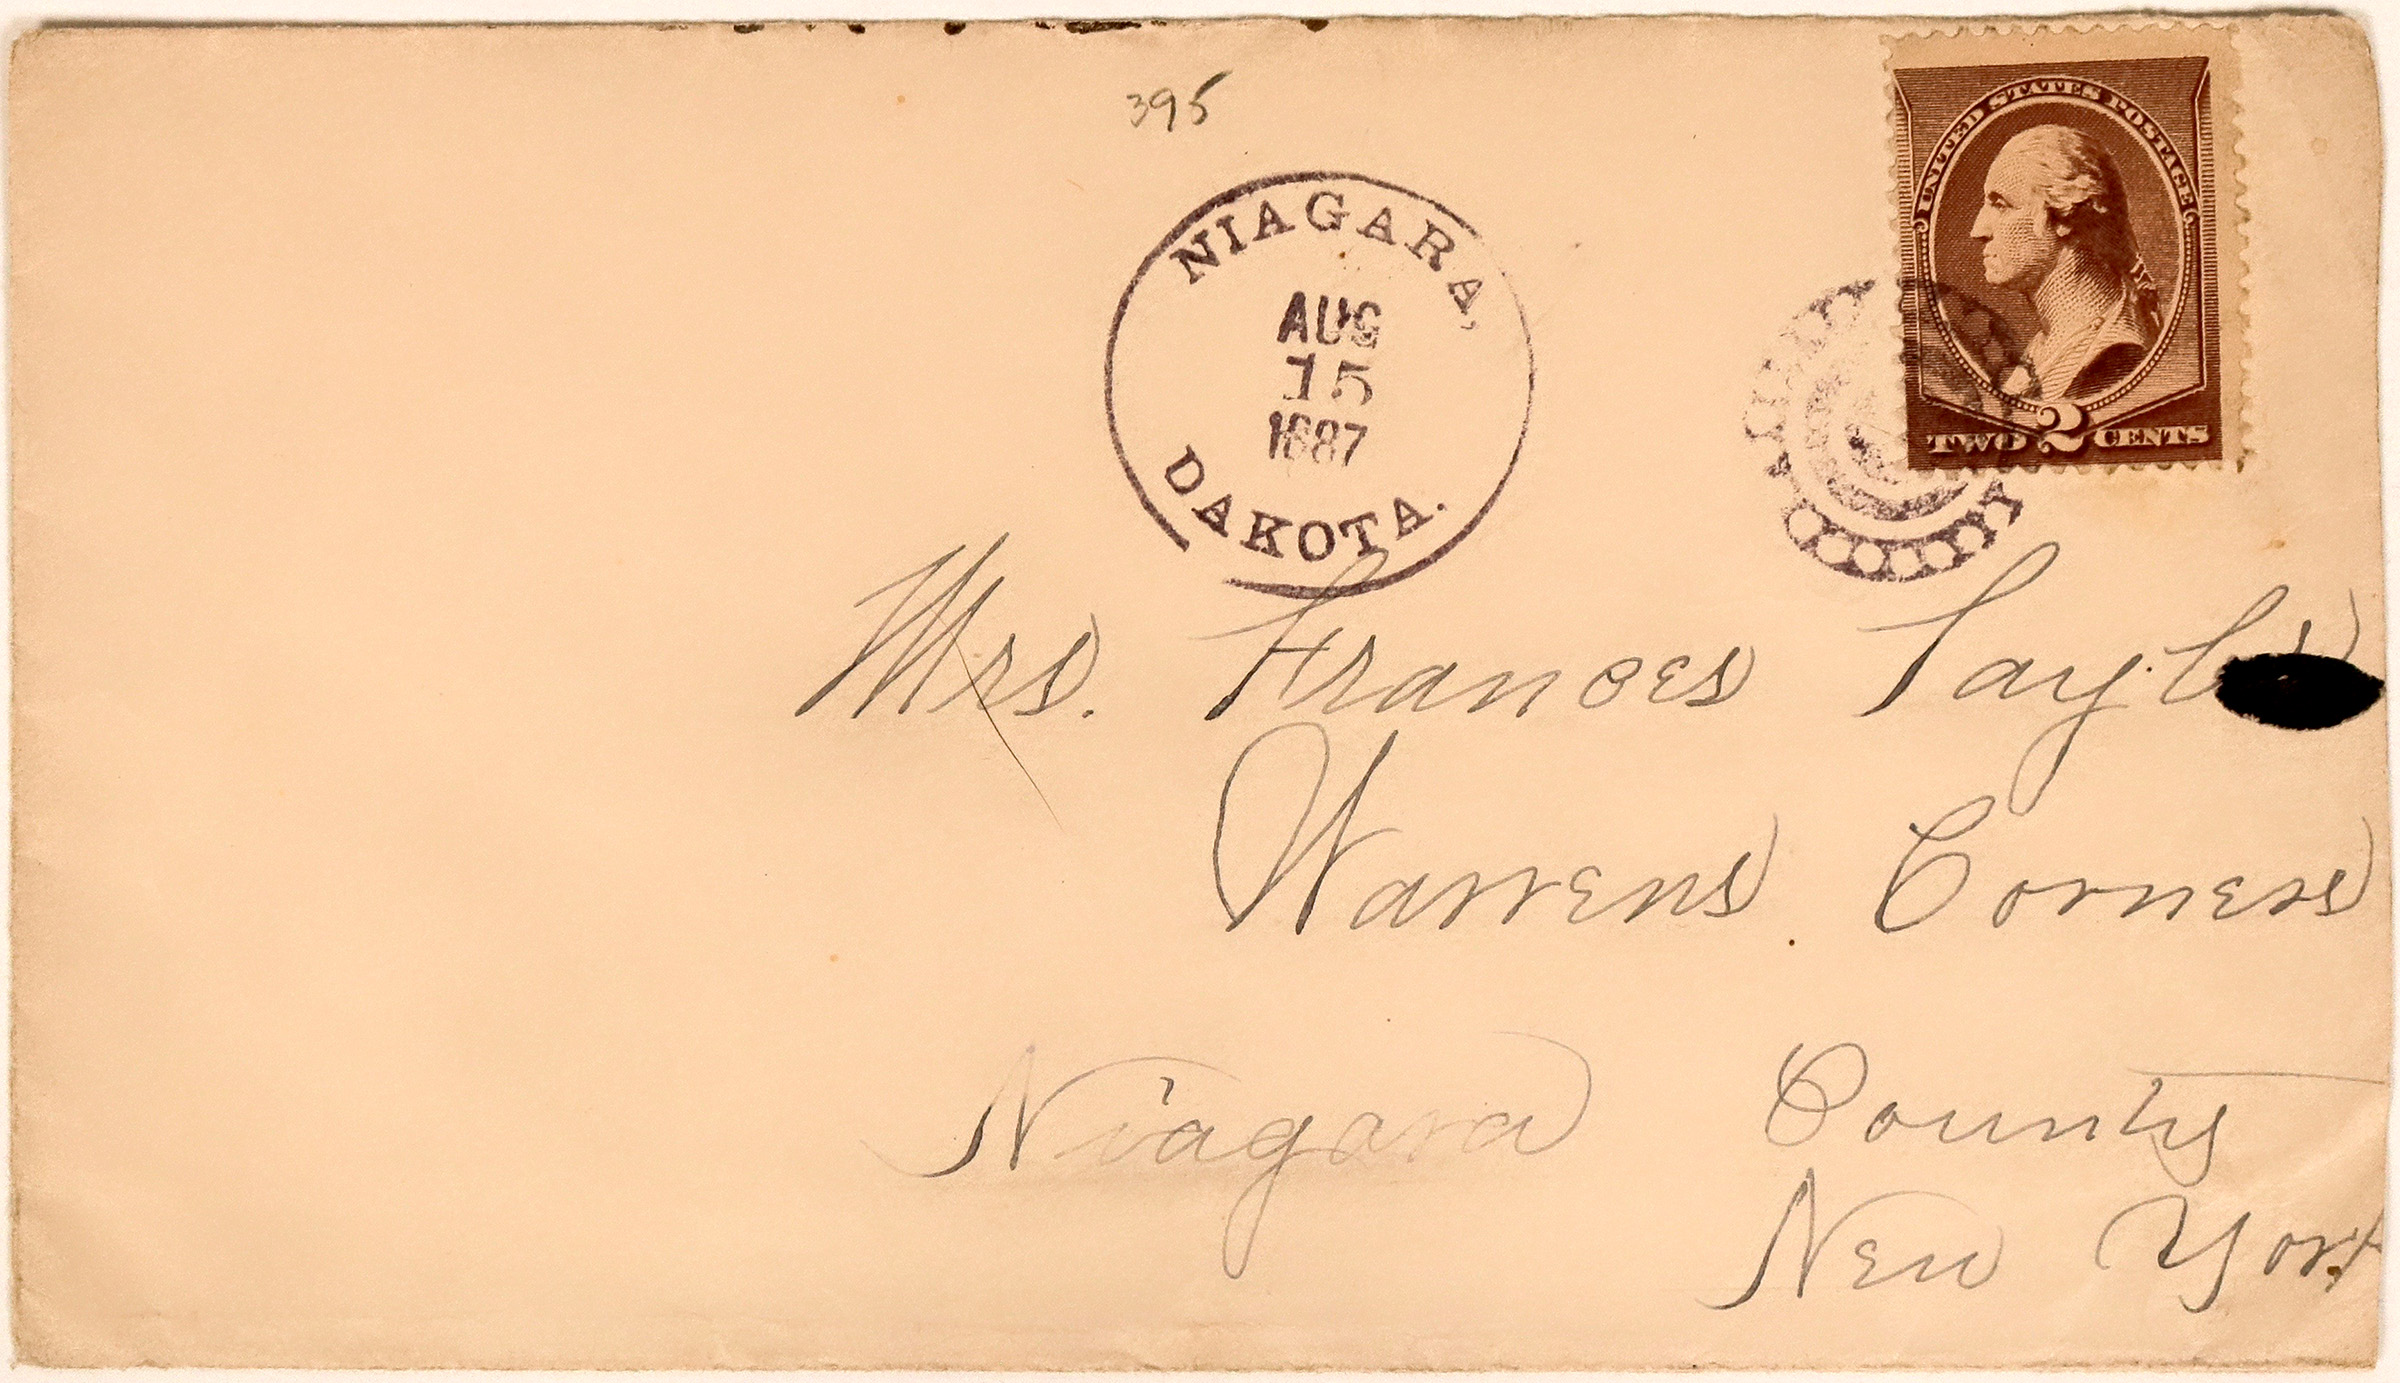 395
UNITED STATES POSTAGE
TWO 2 CENTS
NIAGARA,
AUG
15
1887
DAKOTA.
Mrs. Frances
Warrens Corners
Niagara County
New York